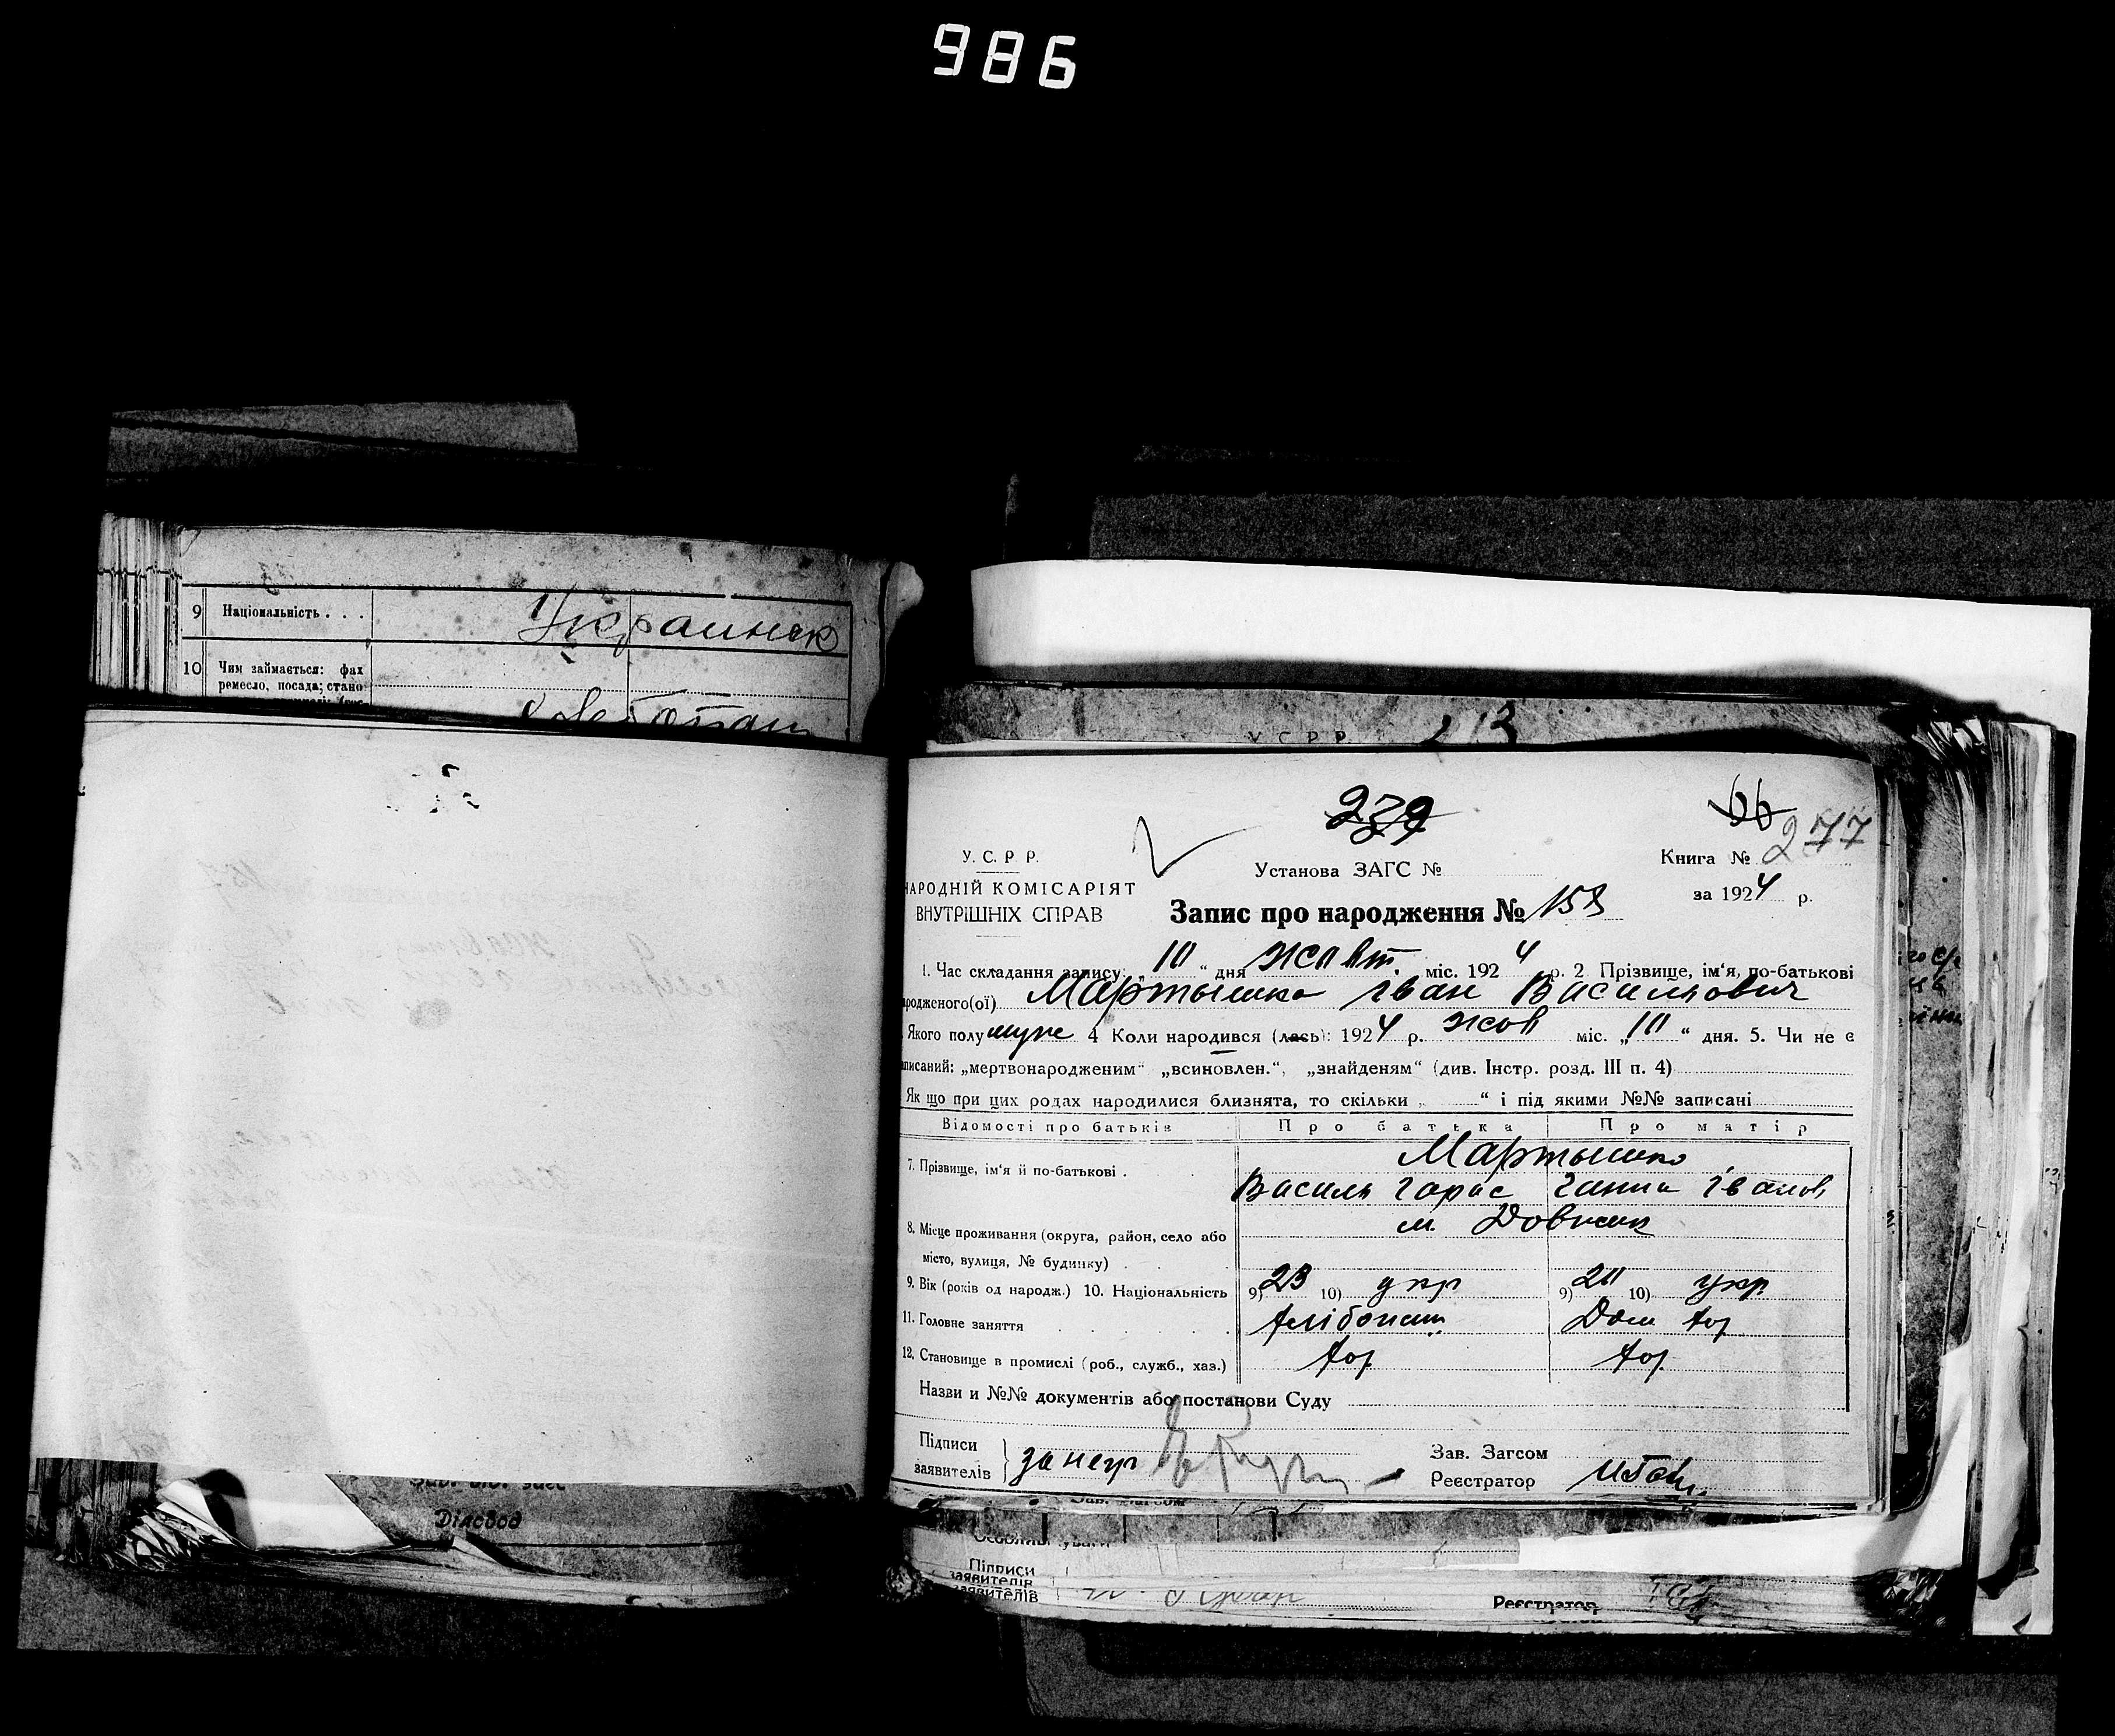 986
9 Національність . . . Украинск
10 Чим займається: фах
ремесло, посада; стано
У С Р Р.
239
66
277
У. С. Р Р.
Установа ЗАГС №
Книга №
НАРОДНІЙ КОМІСАРІЯТ
ВНУТРІШНІХ СПРАВ
за 1924 р.
Запис про народження № 153
1. Час складання запису: „10“ дня жовт. міс. 1924 р. 2 Прізвище, ім‘я, по-батькові
родженого(ої) Мартышко Іван Васильович
Якого полу муж 4 Коли народився (лась): 1924 р. жов міс. „10“ дня. 5. Чи не є
аписаний: „мертвонародженим“ „всиновлен.“, „знайденям“ (див. Інстр. розд. III п. 4)
Як що при цих родах народилися близнята, то скільки „ “ і під якими №№ записані
Відомості про батьків Про батька Про матір
7. Прізвище, ім‘я й по-батькові . Мартышко
Василь Тарас Ганна Іванов
8. Місце проживання (округа, район, село або м. Довыш
місто, вулиця, № будинку) .
9. Вік (років од народж.) 10. Національність 9) 23 10) укр 9) 20 10) укр
11. Головне заняття хлібопаш Дом хоз
12. Становище в промислі (роб., служб., хаз.) хоз хоз
Назви и №№ документів або постанови Суду
Підписи
заявителів за негр
Зав. Загсом
Реєстратор
Діловод
Зав. Загсом
Підписи
заявителів
заявителів
Реєстратор